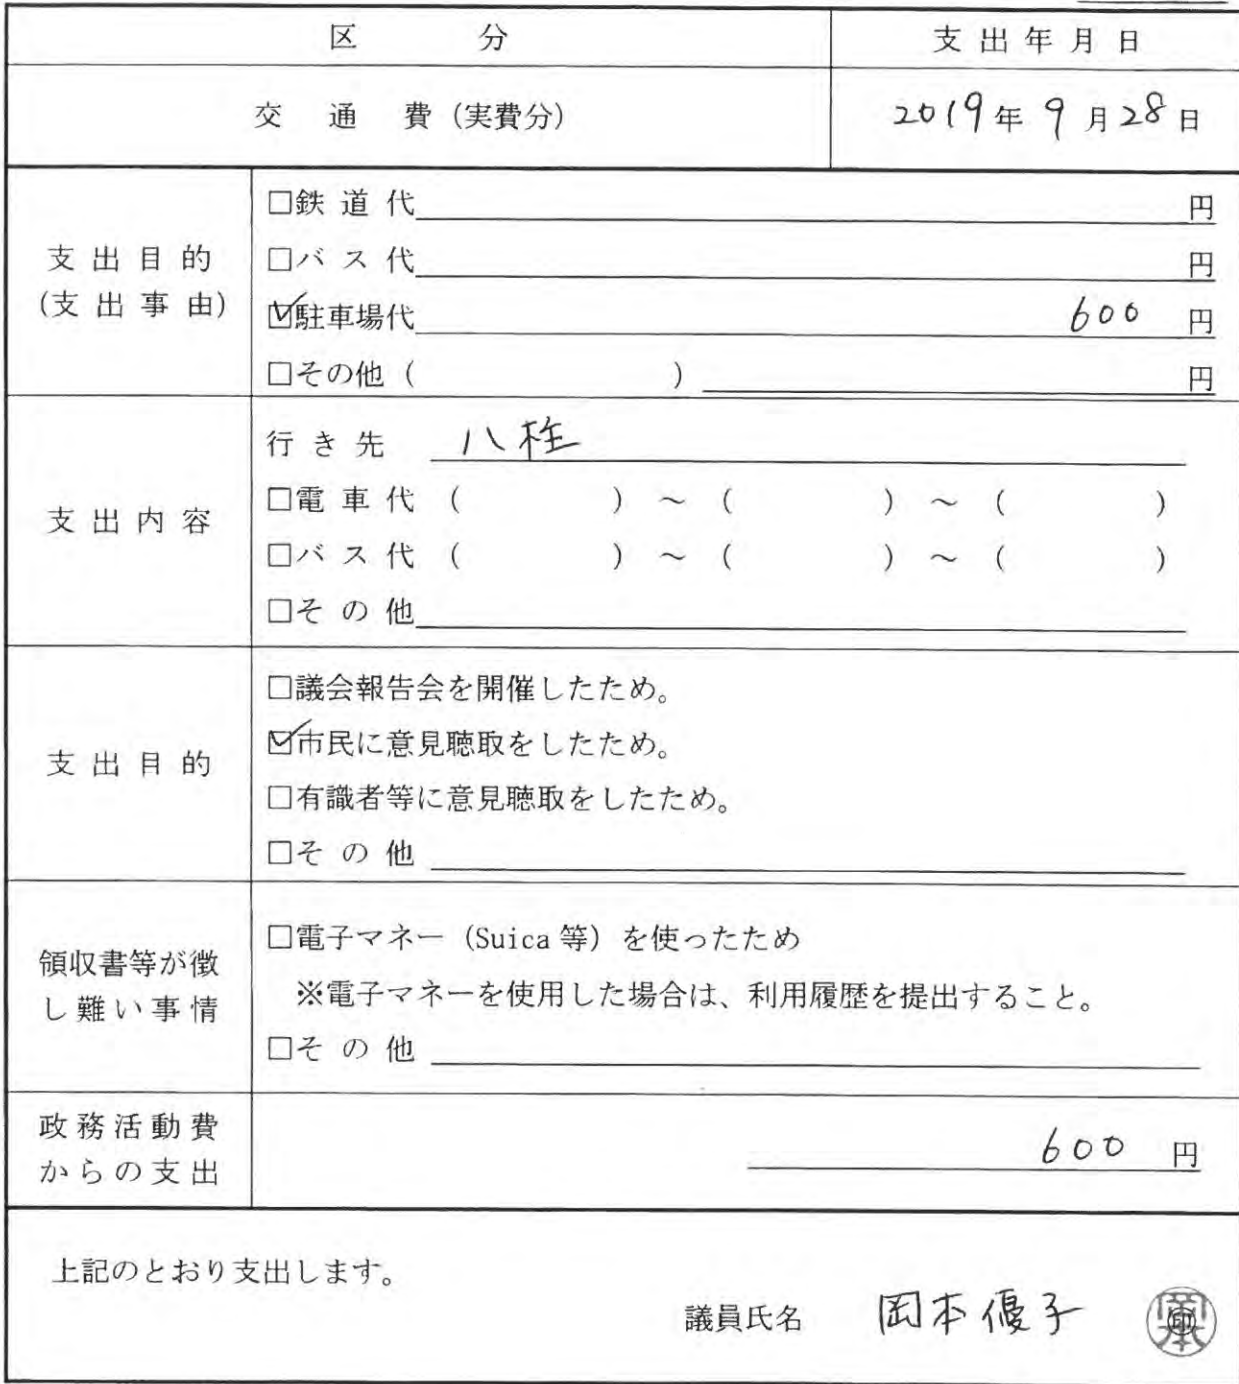 区 分 支出年月日
交 通 費 (実費分) 2019年9月28日
支出目的
(支出事由)
□鉄道代 円
□バス代 円
☑駐車場代 600 円
□その他( ) 円
支出内容
行き先 八柱
□電車代( )~( )~( )
□バス代( )~( )~( )
□その他
支出目的
□議会報告会を開催したため。
☑市民に意見聴取をしたため。
□有識者等に意見聴取をしたため。
□その他
領収書等が徴
し難い事情
□電子マネー(Suica等)を使ったため
※電子マネーを使用した場合は、利用履歴を提出すること。
□その他
政務活動費
からの支出
600 円
上記のとおり支出します。
議員氏名 岡本優子 印